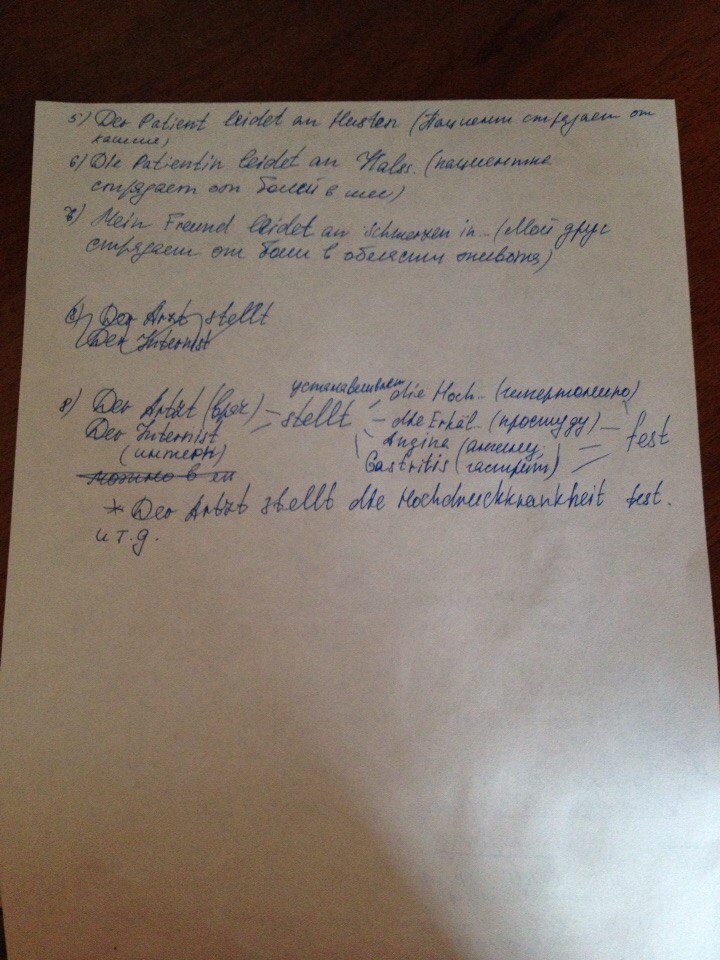 5) Der Patient leidet an Husten (Пациент страдает от
кашля)
6) Die Patientin leidet an Hals.. (пациентка
страдает от болей в шее)
7) Mein Freund leidet an Schmerzen in.. (Мой друг
страдает от боли в области живота)
8) Der Arzt stellt
Der Internist
устанавливает
8) Der Artzt (врач) stellt die Hoch.. (гипертонию)
Der Internist - die Erkäl. (простуду) - fest
(интерн) Angina (ангину)
Gastritis (гастрит)
можно в
* Der Artzt stellt die Hochdruckkrankheit fest.
и т.д.